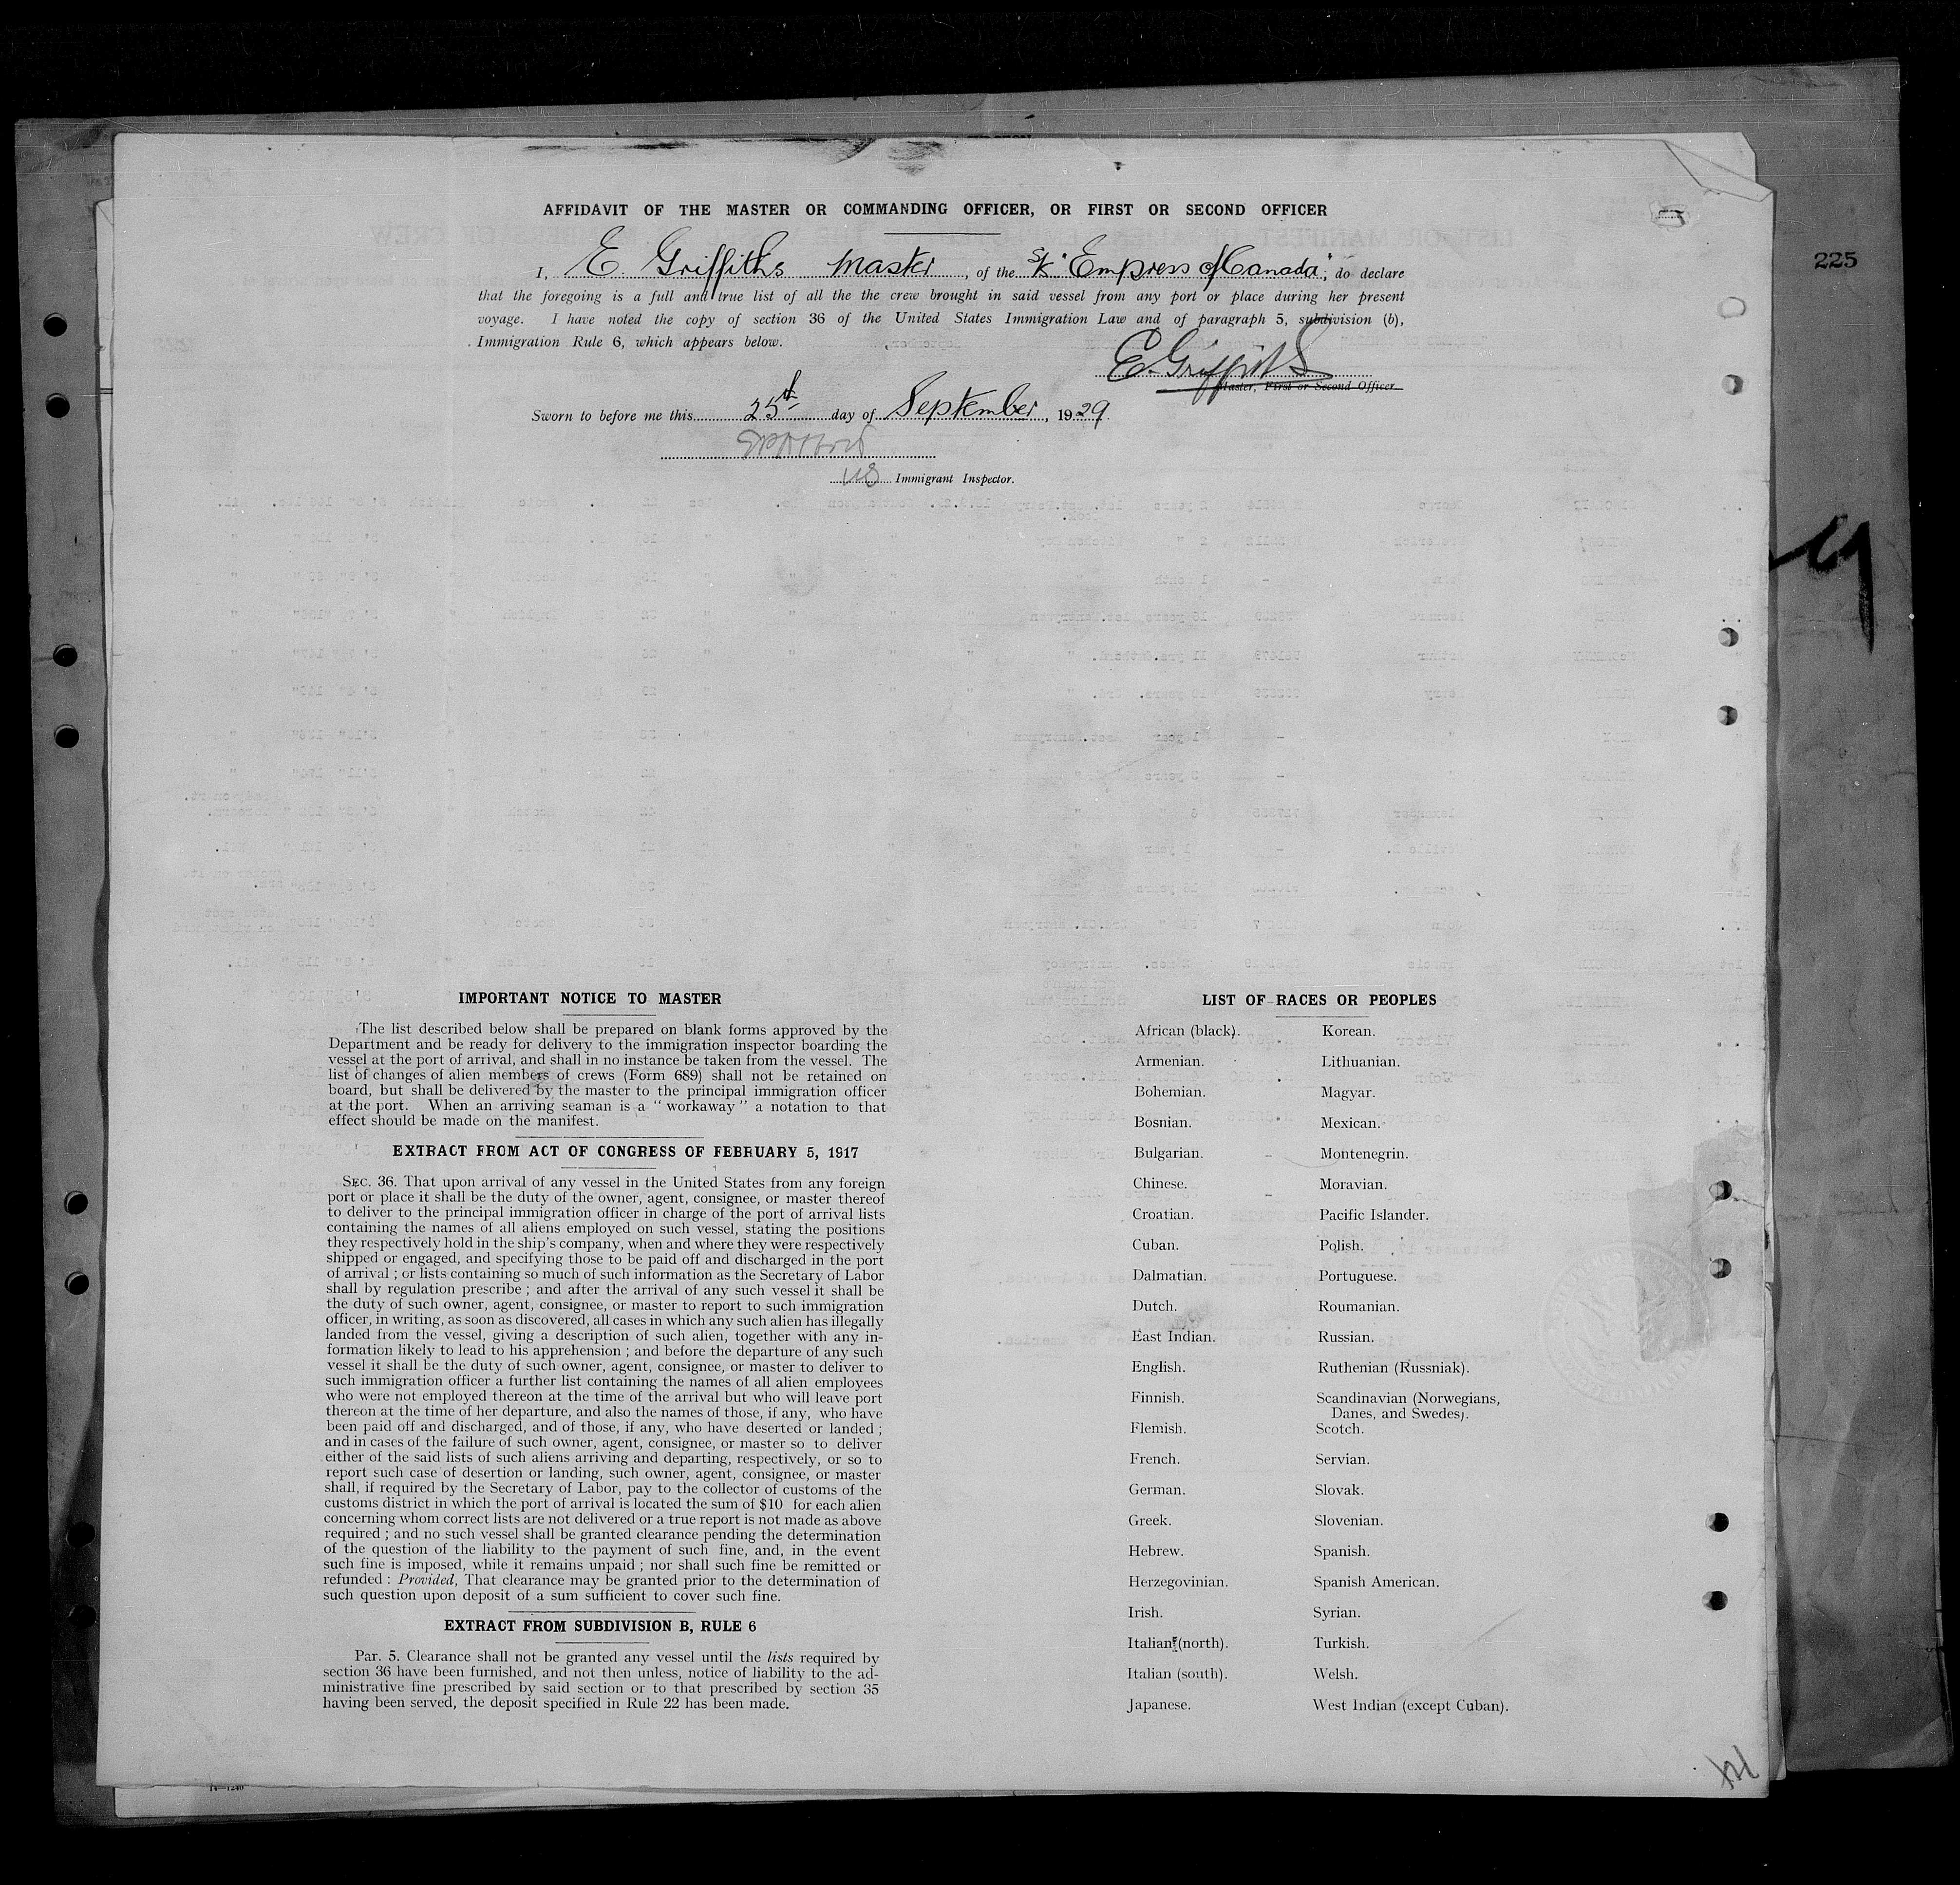 AFFIDAVIT OF THE MASTER OR COMMANDING OFFICER, OR FIRST OR SECOND OFFICER
I, E. Griffiths Master, of the "Empress of Canada", do declare
that the foregoing is a full and true list of all the the crew brought in said vessel from any port or place during her present
voyage. I have noted the copy of section 36 of the United States Immigration Law and of paragraph 5, subdivision (b),
Immigration Rule 6, which appears below.
225
E. Griffiths
Master, First or Second Officer
Sworn to before me this 25th day of September, 1929
US Immigrant Inspector.
IMPORTANT NOTICE TO MASTER
The list described below shall be prepared on blank forms approved by the
Department and be ready for delivery to the immigration inspector boarding the
vessel at the port of arrival, and shall in no instance be taken from the vessel. The
list of changes of alien members of crews (Form 689) shall not be retained on
board, but shall be delivered by the master to the principal immigration officer
at the port. When an arriving seaman is a "workaway" a notation to that
effect should be made on the manifest.
EXTRACT FROM ACT OF CONGRESS OF FEBRUARY 5, 1917
SEC. 36. That upon arrival of any vessel in the United States from any foreign
port or place it shall be the duty of the owner, agent, consignee, or master thereof
to deliver to the principal immigration officer in charge of the port of arrival lists
containing the names of all aliens employed on such vessel, stating the positions
they respectively hold in the ship's company, when and where they were respectively
shipped or engaged, and specifying those to be paid off and discharged in the port
of arrival ; or lists containing so much of such information as the Secretary of Labor
shall by regulation prescribe ; and after the arrival of any such vessel it shall be
the duty of such owner, agent, consignee, or master to report to such immigration
officer, in writing, as soon as discovered, all cases in which any such alien has illegally
landed from the vessel, giving a description of such alien, together with any in-
formation likely to lead to his apprehension ; and before the departure of any such
vessel it shall be the duty of such owner, agent, consignee, or master to deliver to
such immigration officer a further list containing the names of all alien employees
who were not employed thereon at the time of the arrival but who will leave port
thereon at the time of her departure, and also the names of those, if any, who have
been paid off and discharged, and of those, if any, who have deserted or landed ;
and in cases of the failure of such owner, agent, consignee, or master so to deliver
either of the said lists of such aliens arriving and departing, respectively, or so to
report such case of desertion or landing, such owner, agent, consignee, or master
shall, if required by the Secretary of Labor, pay to the collector of customs of the
customs district in which the port of arrival is located the sum of $10 for each alien
concerning whom correct lists are not delivered or a true report is not made as above
required ; and no such vessel shall be granted clearance pending the determination
of the question of the liability to the payment of such fine, and, in the event
such fine is imposed, while it remains unpaid ; nor shall such fine be remitted or
refunded : Provided, That clearance may be granted prior to the determination of
such question upon deposit of a sum sufficient to cover such fine.
EXTRACT FROM SUBDIVISION B, RULE 6
Par. 5. Clearance shall not be granted any vessel until the lists required by
section 36 have been furnished, and not then unless, notice of liability to the ad-
ministrative fine prescribed by said section or to that prescribed by section 35
having been served, the deposit specified in Rule 22 has been made.
LIST OF RACES OR PEOPLES
African (black).
Armenian.
Bohemian.
Bosnian.
Bulgarian.
Chinese.
Croatian.
Cuban.
Dalmatian.
Dutch.
East Indian.
English.
Finnish.
Flemish.
French.
German.
Greek.
Hebrew.
Herzegovinian.
Irish.
Italian (north).
Italian (south).
Japanese.
Korean.
Lithuanian.
Magyar.
Mexican.
Montenegrin.
Moravian.
Pacific Islander.
Polish.
Portuguese.
Roumanian.
Russian.
Ruthenian (Russniak).
Scandinavian (Norwegians,
Danes, and Swedes).
Scotch.
Servian.
Slovak.
Slovenian.
Spanish.
Spanish American.
Syrian.
Turkish.
Welsh.
West Indian (except Cuban).
14—1240